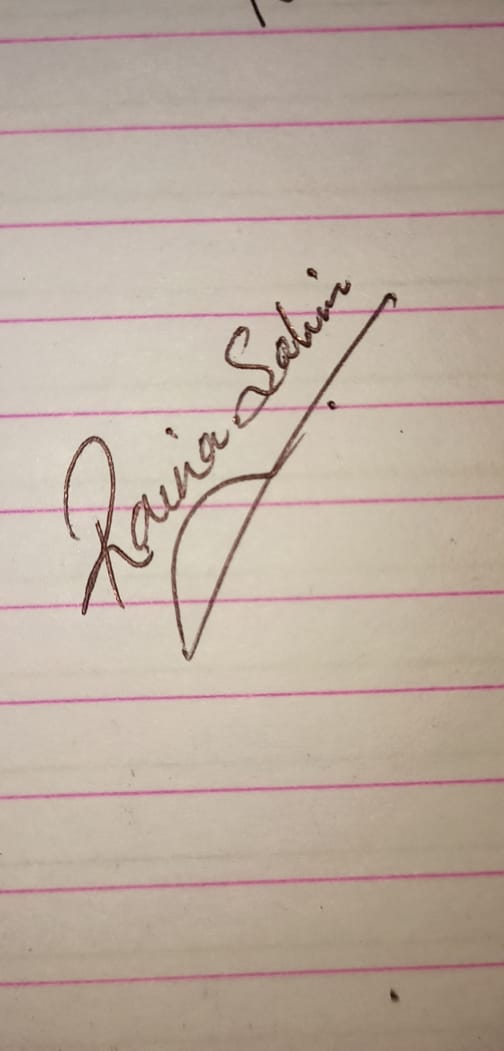 Raina Sahni